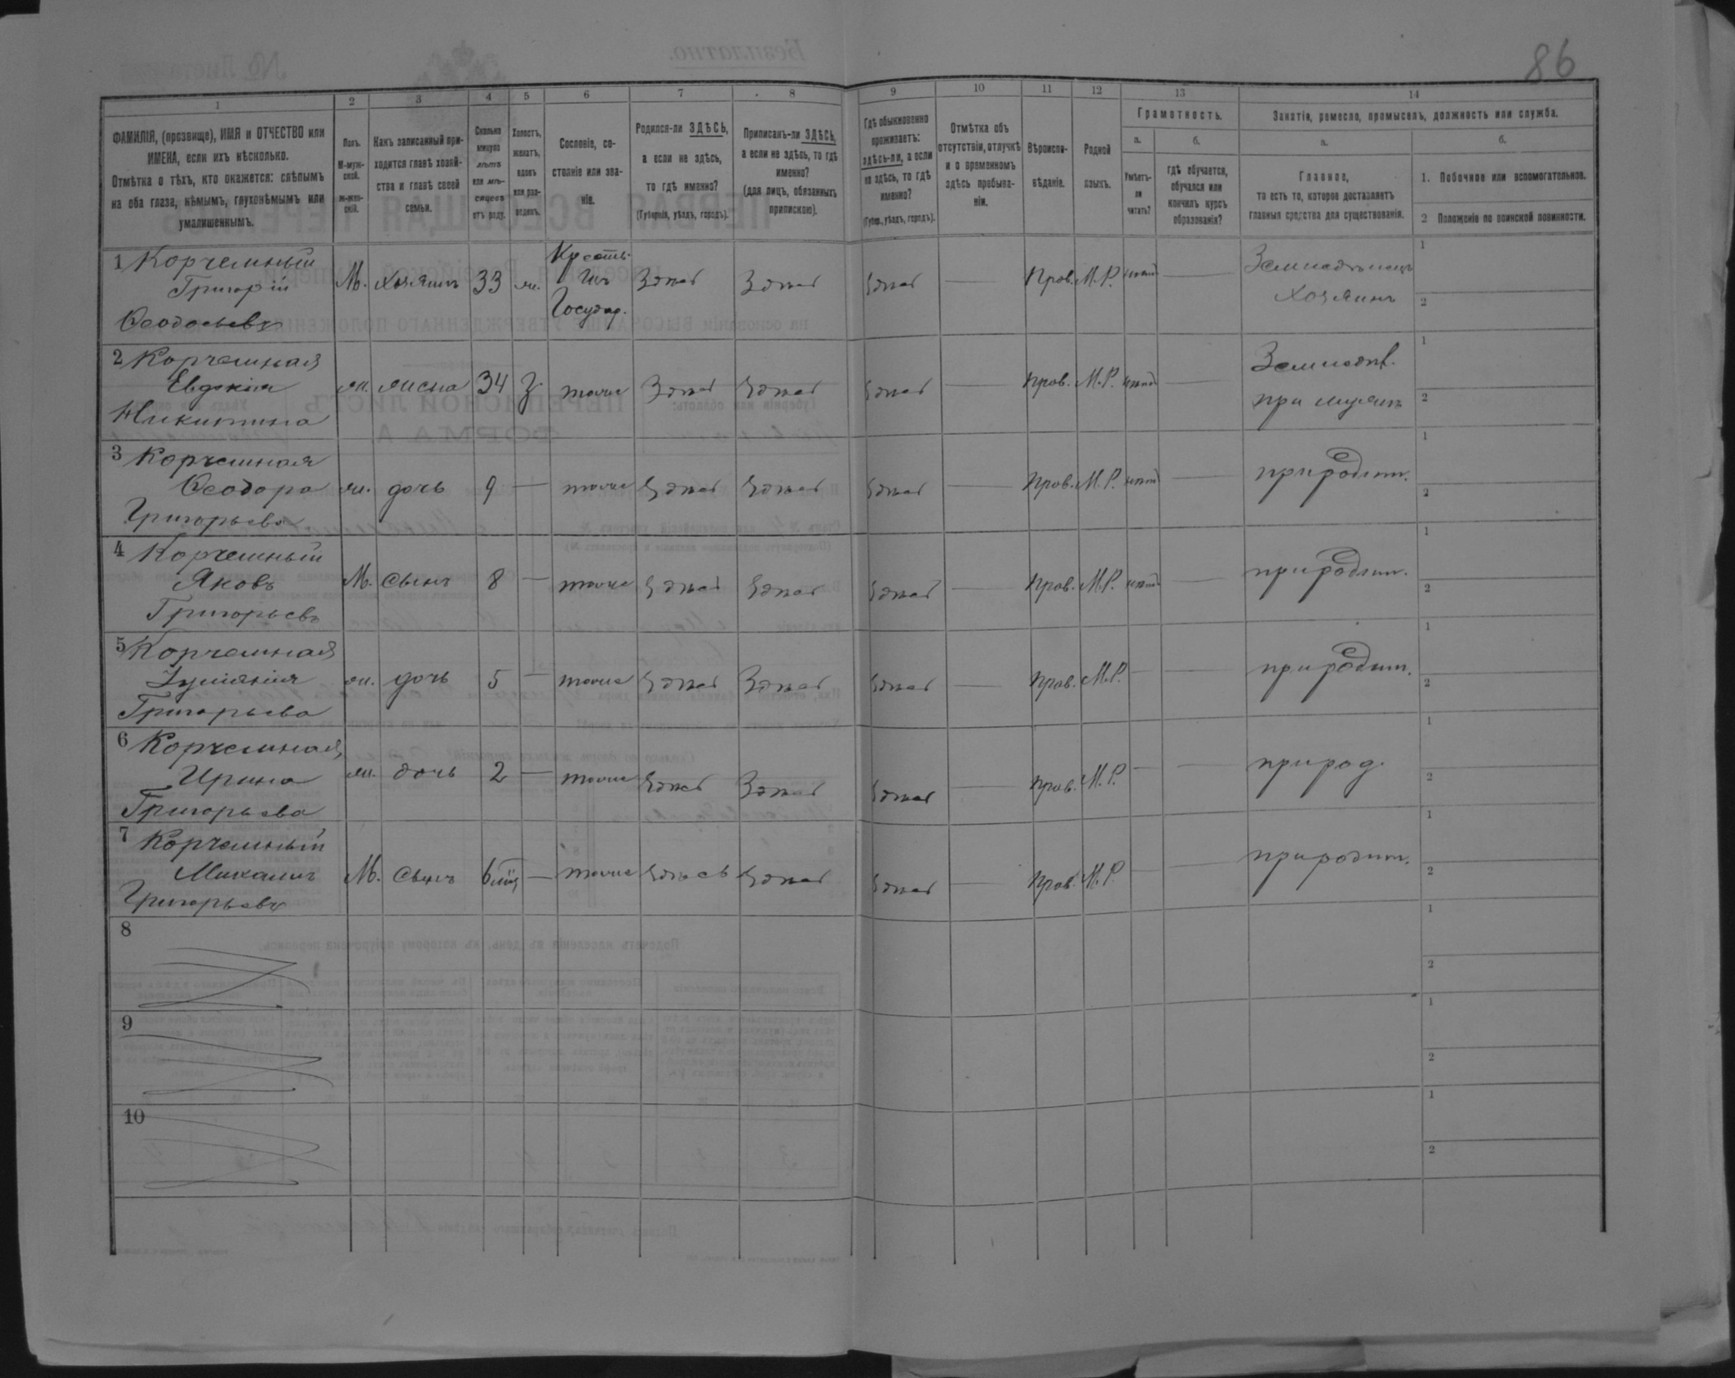 86
1 2 3 4 5 6 7 8 9 10 11 12 13 14
ФАМИЛІЯ, (прозвище), ИМЯ и ОТЧЕСТВО или ИМЕНА, если ихъ нѣсколько.
Отмѣтка о тѣхъ, кто окажется: слѣпымъ на оба глаза, нѣмымъ, глухонѣмымъ или умалишеннымъ.
Полъ. М-мужской. Ж-женскій.
Какъ записанный приходится главѣ хозяйства и главѣ своей семьи.
Сколько минуло лѣтъ или мѣсяцевъ отъ роду.
Холостъ, женатъ, вдовъ или разведенъ.
Сословіе, состояніе или званіе.
Родился-ли ЗДѢСЬ, а если не здѣсь, то гдѣ именно?
(Губернія, уѣздъ, городъ).
Приписанъ-ли ЗДѢСЬ, а если не здѣсь, то гдѣ именно?
(для лицъ, обязанныхъ припискою).
Гдѣ обыкновенно проживаетъ: здѣсь-ли, а если не здѣсь, то гдѣ именно?
(Губер., уѣздъ, городъ).
Отмѣтка объ отсутствіи, отлучкѣ и о временномъ здѣсь пребываніи.
Вѣроисповѣданіе.
Родной языкъ.
Грамотность.
а. Умѣетъ-ли читать?
б. Гдѣ обучается, обучался или кончилъ курсъ образованія?
Занятіе, ремесло, промыселъ, должность или служба.
а. Главное, то есть то, которое доставляетъ главныя средства для существованія.
б.
1. Побочное или вспомогательное.
2 Положеніе по воинской повинности.
1 Корчемный Григорій Ѳеодосьевъ М. хозяинъ 33 ж. Крестьянинъ Государ. Здѣсь Здѣсь Здѣсь — Прав. М.Р. — Земледѣлецъ хозяинъ 1 2
2 Корчемная Евдокія Никитина ж. жена 34 з. тоже Здѣсь Здѣсь Здѣсь — Прав. М.Р. — Земледѣл. при мужѣ 1 2
3 Корчемная Ѳеодора Григорьева ж. дочь 9 — тоже Здѣсь Здѣсь Здѣсь — Прав. М.Р. — при родит. 1 2
4 Корчемный Яковъ Григорьевъ М. сынъ 8 — тоже Здѣсь Здѣсь Здѣсь — Прав. М.Р. — при родит. 1 2
5 Корчемная Григорьева ж. дочь 5 — тоже Здѣсь Здѣсь Здѣсь — Прав. М.Р. — — при родит. 1 2
6 Корчемная Ирина Григорьева ж. дочь 2 — тоже Здѣсь Здѣсь Здѣсь — Прав. М.Р. — — при род. 1 2
7 Корчемный Михаилъ Григорьевъ М. сынъ 6 — тоже Здѣсь Здѣсь Здѣсь — Прав. М.Р. — — при родит. 1 2
8 1 2
9 1 2
10 1 2